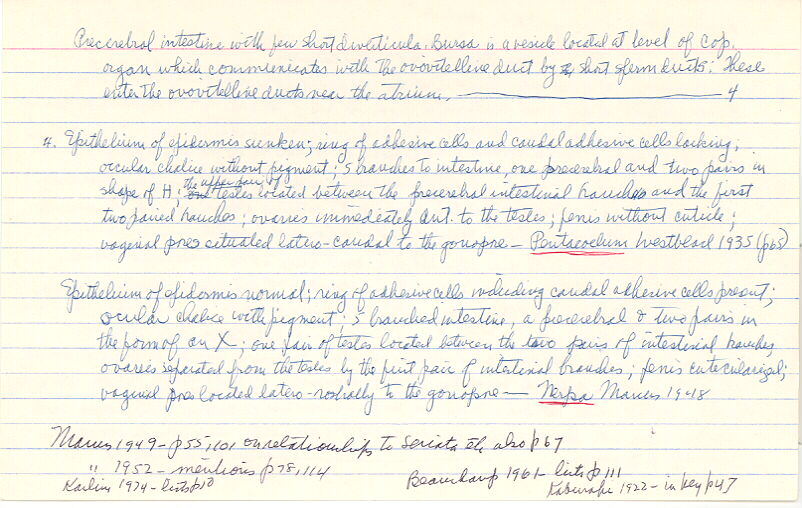 Precerebral intestine with few short diverticula. Bursa is a vesicle located at level of cop.
organ which communicates with the ovovitelline duct by short sperm ducts. These
enter the ovovitelline ducts near the atrium. ——— 4
4. Epithelium of epidermis sunken; ring of adhesive cells and caudal adhesive cells lacking;
ocular chalice without pigment; 5 branches to intestine, one precerebral and two pairs in
shape of H; the after pair of testes located between the precerebral intestinal branches and the first
two paired branches; ovaries immediately ant. to the testes; penis without cuticle;
vaginal pores situated latero-caudal to the gonopore — Pentacoelum Westblad 1935 (p65)
Epithelium of epidermis normal; ring of adhesive cells including caudal adhesive cells present;
ocular chalice with pigment; 5 branched intestine, a precerebral & two pairs in
the form of an X; one pair of testes located between the two pairs of intestinal branches
ovaries separated from the testes by the first pair of intestinal branches; penis cuticularized;
vaginal pores located latero-rostrally to the gonopore — Nerpa Marcus 1948
Marcus 1949 - p55, 101 on relationships to Seriata etc also p67
" 1952 - mentions p78, 114
Beauchamp 1961 - lists p111
Karling 1974 - lists p10
Kaburaki 1922 - in key p47